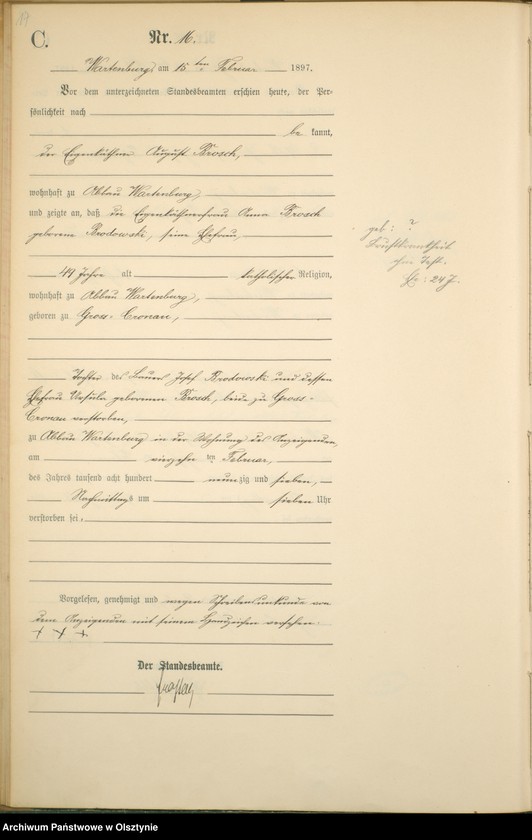 C.
Nr. 16.
Wartenburg, am 15ten Februar 1897.
Vor dem unterzeichneten Standesbeamten erschien heute, der Per-
sönlichkeit nach
be kannt,
der Eigenkäthner August Brosch,
wohnhaft zu Abbau Wartenburg,
und zeigte an, daß die Eigenkäthnerfrau Anna Brosch
geborene Brodowski, seine Ehefrau,
44 Jahre alt katholischer Religion,
wohnhaft zu Abbau Wartenburg,
geboren zu Gross-Cronau,
Tochter des Bauern Josef Brodowski und dessen
Ehefrau Ursula geborenen Brosch, beide zu Gross-
Cronau verstorben,
zu Abbau Wartenburg in der Wohnung des Anzeigenden,
am vierzehnten Februar,
des Jahres tausend acht hundert neunzig und sieben,
Nachmittags um sieben Uhr
verstorben sei.
Vorgelesen, genehmigt und wegen Schreibensunkunde von
dem Anzeigenden mit seinem Handzeichen versehen.
+ + +
Der Standesbeamte.
geb: ?
24 J.
Archiwum Państwowe w Olsztynie